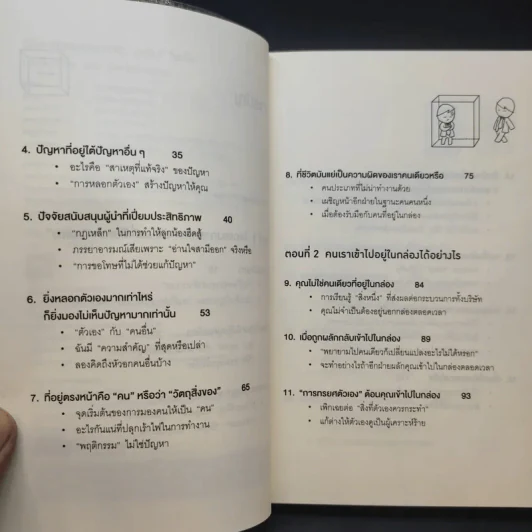 4. ปัญหาที่อยู่ใต้ปัญหาอื่น ๆ 35
• อะไรคือ "สาเหตุที่แท้จริง" ของปัญหา
• "การหลอกตัวเอง" สร้างปัญหาให้คุณ
5. ปัจจัยสนับสนุนผู้นำที่เปี่ยมประสิทธิภาพ 40
• "กฎเหล็ก" ในการทำให้ลูกน้องฮึดสู้
• ภรรยาอารมณ์เสียเพราะ "อ่านใจสามีออก" จริงหรือ
• "การขอโทษที่ไม่ได้ช่วยแก้ปัญหา"
6. ยิ่งหลอกตัวเองมากเท่าไหร่
ก็ยิ่งมองไม่เห็นปัญหามากเท่านั้น 53
• "ตัวเอง" กับ "คนอื่น"
• ฉันมี "ความสำคัญ" ที่สุดหรือเปล่า
• ลองคิดถึงหัวอกคนอื่นบ้าง
7. ที่อยู่ตรงหน้าคือ "คน" หรือว่า "วัตถุสิ่งของ" 65
• จุดเริ่มต้นของการมองคนให้เป็น "คน"
• อะไรกันแน่ที่ปลุกเร้าไฟในการทำงาน
• "พฤติกรรม" ไม่ใช่ปัญหา
8. ที่ชีวิตมันแย่เป็นความผิดของเราคนเดียวหรือ 75
• คนประเภทที่ไม่น่าทำงานด้วย
• เผชิญหน้าอีกฝ่ายในฐานะคนคนหนึ่ง
• เมื่อต้องรับมือกับคนที่อยู่ในกล่อง
ตอนที่ 2 คนเราเข้าไปอยู่ในกล่องได้อย่างไร
9. คุณไม่ใช่คนเดียวที่อยู่ในกล่อง 84
• การเรียนรู้ "สิ่งหนึ่ง" ที่ส่งผลต่อกระบวนการทั้งบริษัท
• คุณไม่จำเป็นต้องอยู่นอกกล่องตลอดเวลา
10. เมื่อถูกผลักกลับเข้าไปในกล่อง 89
• "พยายามไปคนเดียวก็เปลี่ยนแปลงอะไรไม่ได้หรอก"
• จะทำอย่างไรถ้าอีกฝ่ายผลักคุณเข้าไปในกล่องตลอดเวลา
11. "การทรยศตัวเอง" ต้อนคุณเข้าไปในกล่อง 93
• เพิกเฉยต่อ "สิ่งที่ตัวเองควรกระทำ"
• แก้ต่างให้ตัวเองดูเป็นผู้เคราะห์ร้าย